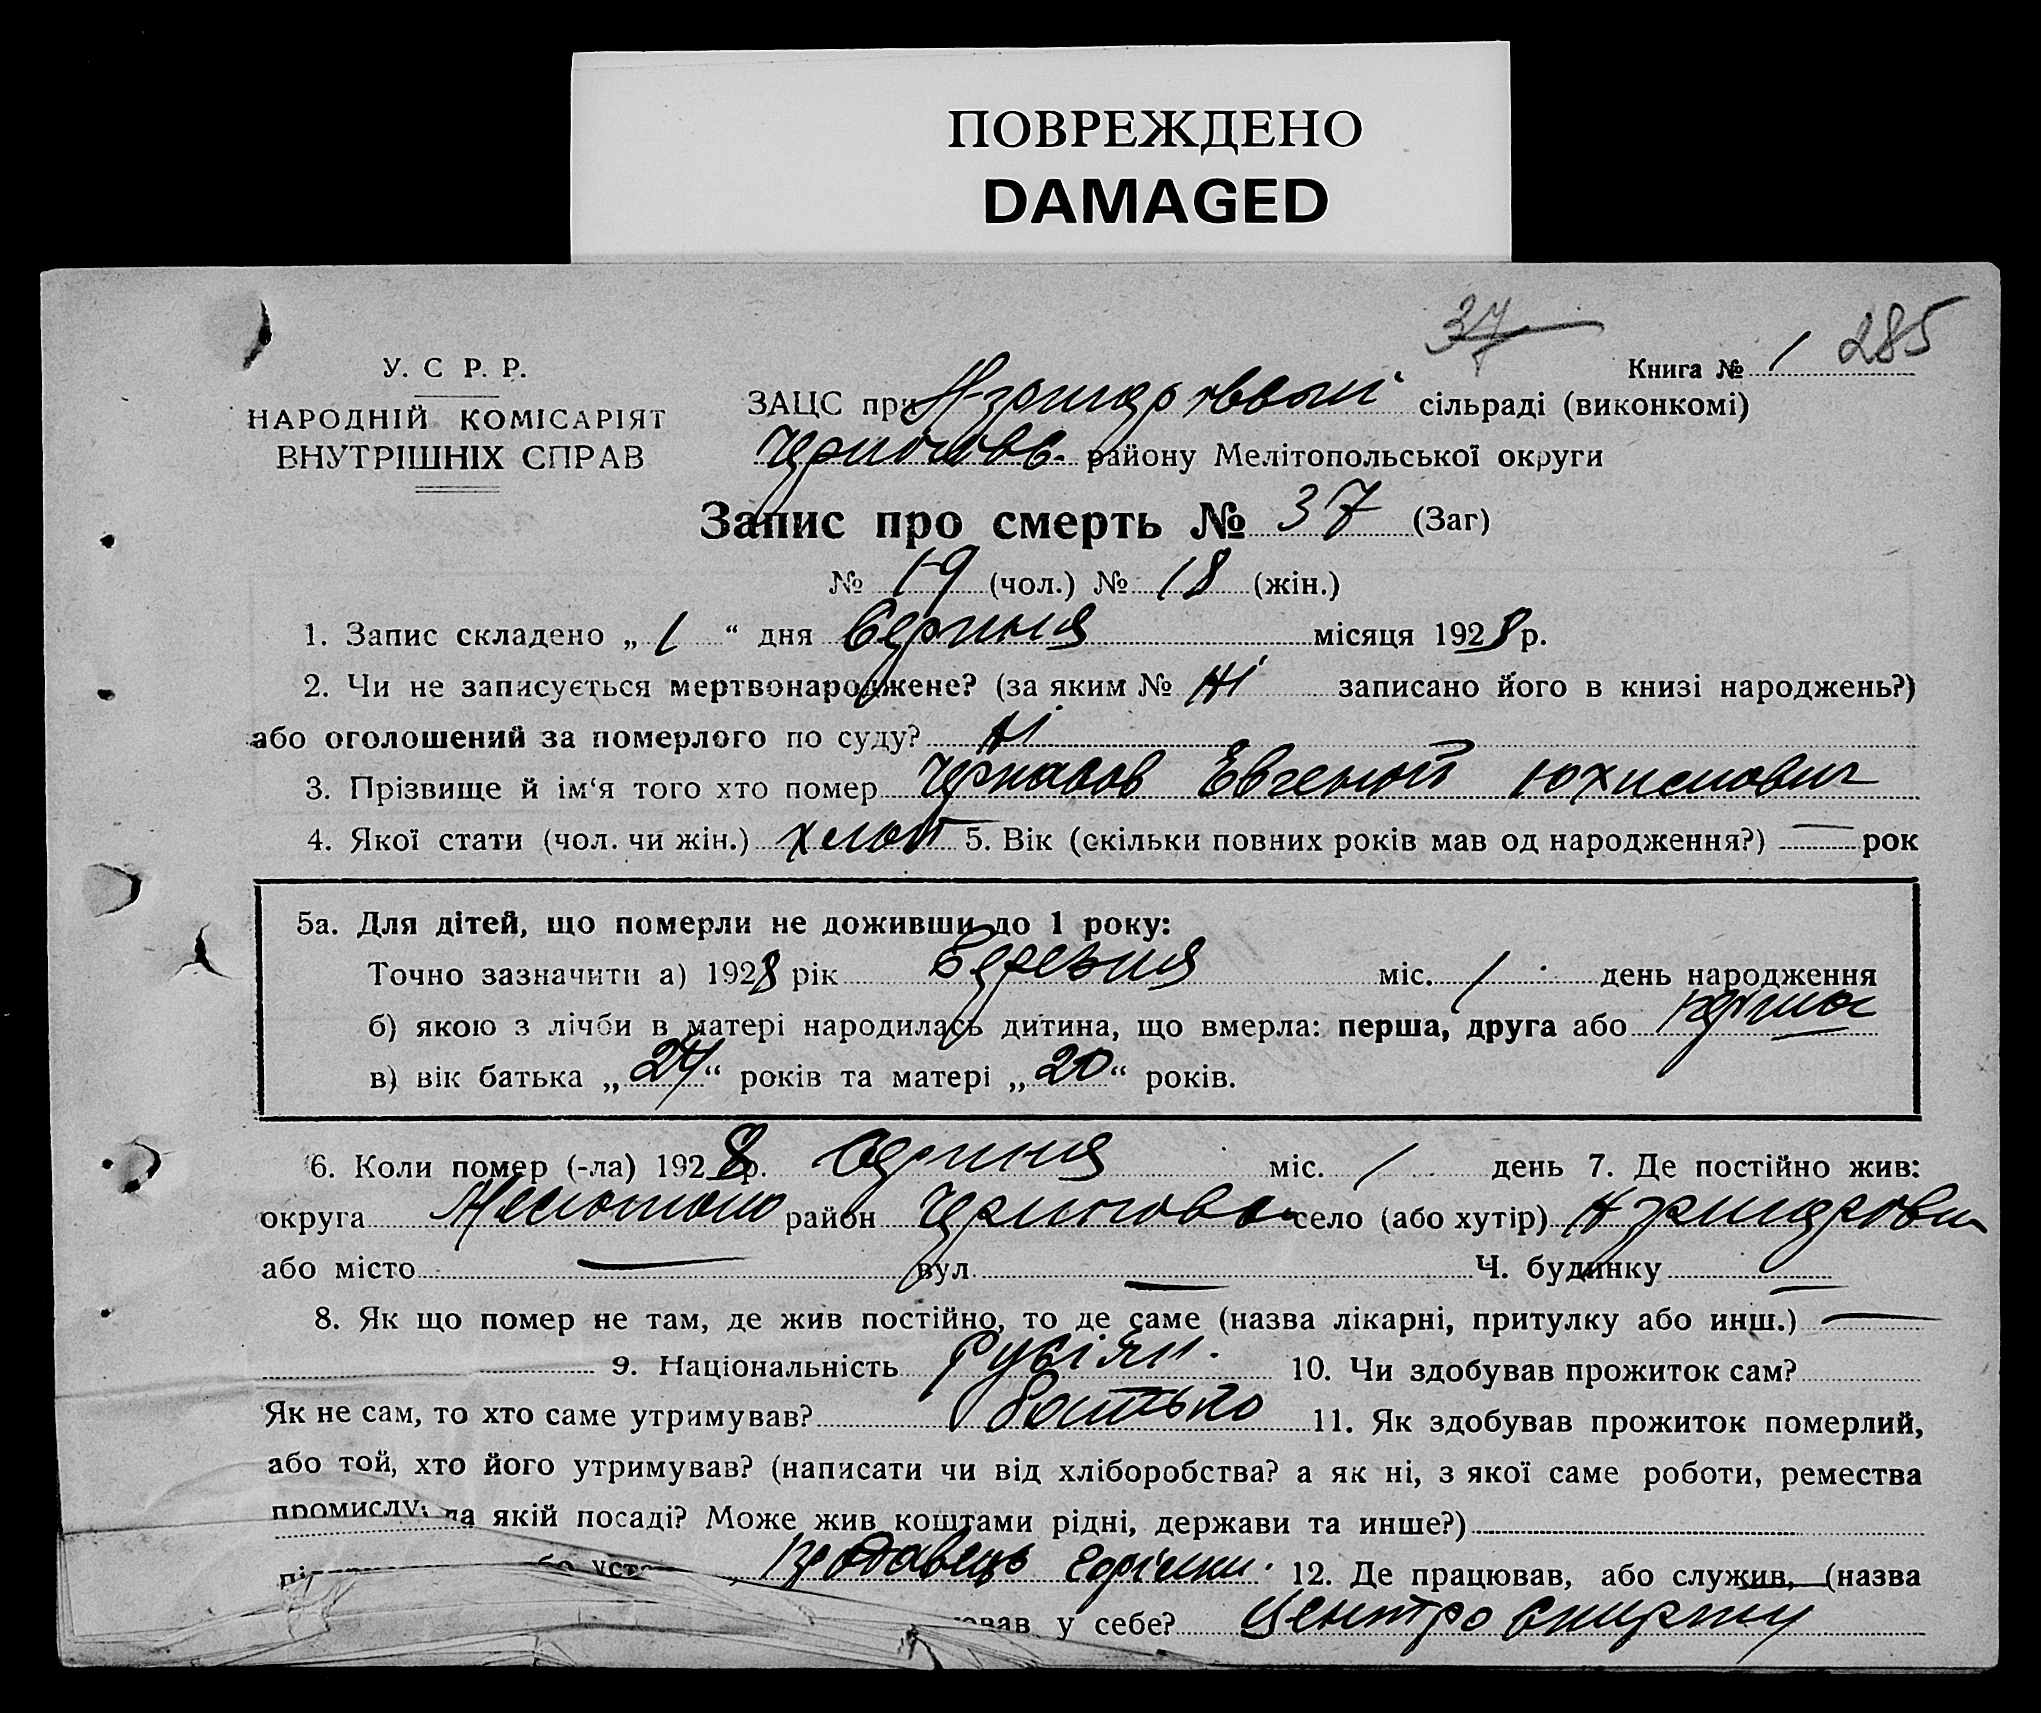 ПОВРЕЖДЕНО
DAMAGED
37
285
Книга № 1
У. С Р. Р.
НАРОДНІЙ КОМІСАРІЯТ
ВНУТРІШНІХ СПРАВ
ЗАЦС при сільраді (виконкомі)
району Мелітопольської округи
Запис про смерть № 37 (Заг)
№ 19 (чол.) № 18 (жін.)
1. Запис складено „ 1 “ дня Серпня місяця 1928 р.
2. Чи не записується мертвонароджене? (за яким № Ні записано його в книзі народжень?)
або оголошений за померлого по суду? Ні
3. Прізвище й ім‘я того хто помер Евгений Юхимович
4. Якої стати (чол. чи жін.) хлоп 5. Вік (скільки повних років мав од народження?) — рок
5а. Для дітей, що померли не доживши до 1 року:
Точно зазначити а) 1928 рік Березня міс. 1 день народження
б) якою з лічби в матері народилась дитина, що вмерла: перша, друга або
в) вік батька „ 24 “ років та матері „ 20 “ років.
6. Коли помер (-ла) 1928 р. Серпня міс. 1 день 7. Де постійно жив:
округа район село (або хутір)
або місто — вул. — Ч. будинку —
8. Як що помер не там, де жив постійно, то де саме (назва лікарні, притулку або инш.) —
9. Національність Русіян. 10. Чи здобував прожиток сам?
Як не сам, то хто саме утримував? Батько 11. Як здобував прожиток померлий,
або той, хто його утримував? (написати чи від хліборобства? а як ні, з якої саме роботи, ремества
промислу; на якій посаді? Може жив коштами рідні, держави та инше?)
Продавець горілки. 12. Де працював, або служив, (назва
у себе? Центро Спирту